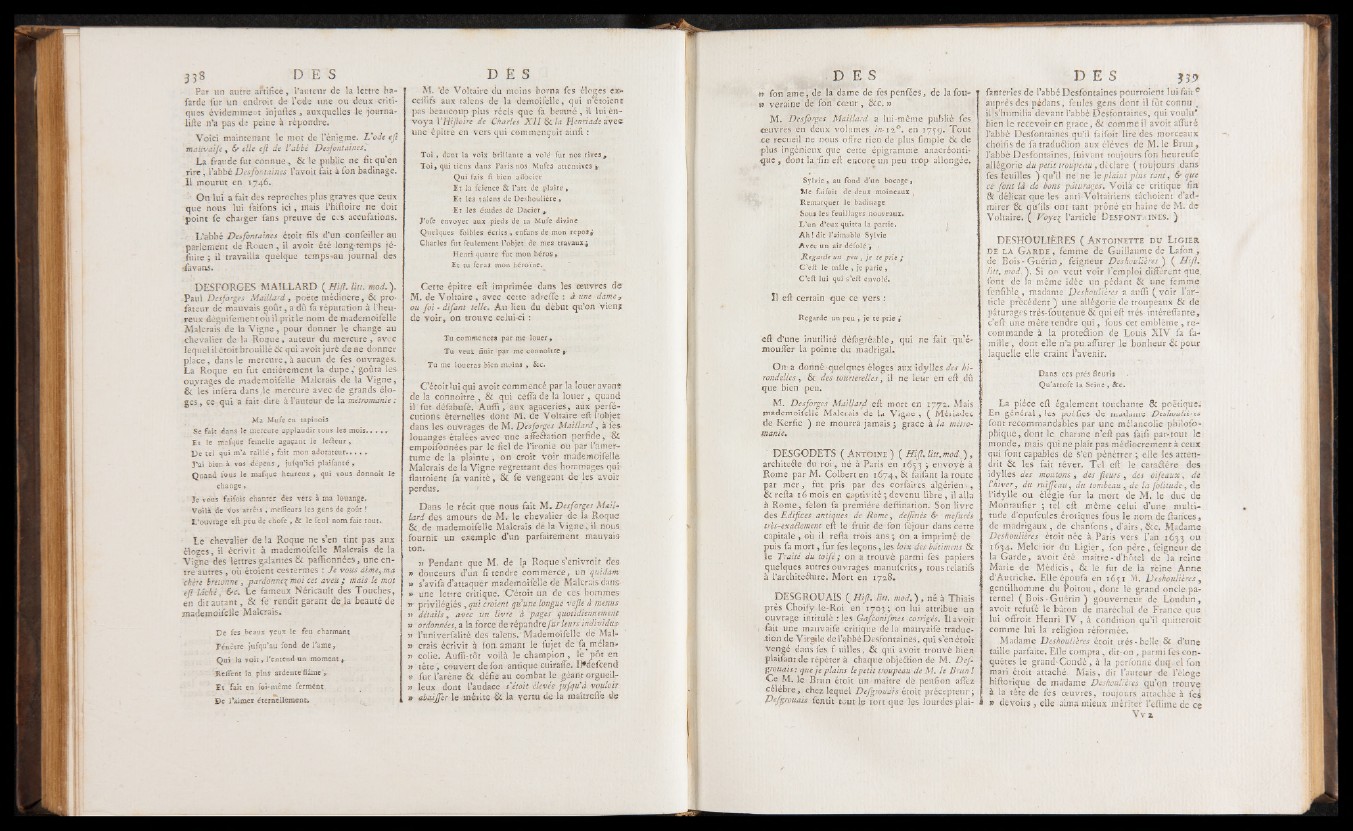 338 DES DES
Par un autre artifice, l'auteur de la lettre ha-
sarde sur un endroit de l'ode une ou deux criti-
ques évidemment injustes, auxquelles le journa-
liste n'a pas de peine à répondre.
Voici maintenant le mot de l'énigme. L'ode est
mauvaise, & elle est de l'abbé Desfontaines.
La fraude fut connue, & le public ne fit qu'en
rire, l'abbé Desfontaines l'avoit fait à son badinage.
Il mourut en 1746.
On lui a fait des reproches plus graves que ceux
que nous lui faisons ici, mais l'histoire ne doit
point se charger sans preuve de ces accusations.
L'abbé Desfontaines étoit fils d'un conseiller au
parlement de Rouen, il avoit été long-temps jé-
suite; il travailla quelque temps au journal des
savans.
DESFORGES MAILLARD ( Hist. litt. mod. ).
Paul Desforges Maillard, poète médiocre, & pro-
sateur de mauvais goût, a dû sa réputation à l'heu-
reux déguisement où il prit le nom de mademoiselle
Malcrais de la Vigne, pour donner le change au
chevalier de la Roque, auteur du mercure, avec
lequel il étoit brouillé & qui avoit juré de ne donner
place, dans le mercure, à aucun de ses ouvrages.
La Roque en fut entièrement la dupe, goûta les
ouvrages de mademoiselle Malcrais de la Vigne,
& les inséra dans le mercure avec de grands élo-
ges, ce qui a fait dire à l'auteur de la métromanie:
Ma Muse en tapinois
Se fait dans le mercure applaudir tous les mois.....
Et le masque femelle agaçant le lecteur,
De tel qui m'a raillé, fait mon adorateur.....
J'ai bien à vos dépens, jusqu'ici plaisanté,
Quand sous le masque heureux, qui vous donnoit le
change,
Je vous faisois chanter des vers à ma louange.
Voilà de vos arrêts, messieurs les gens de goût!
L'ouvrage est peu de chose, & le seul nom fait tout.
Le chevalier de la Roque ne s'en tint pas aux
éloges, il écrivit à mademoiselle Malcrais de la
Vigne des lettres galantes & passionnées, une en-
tre autres, où étoient ces termes: Je vous aime, ma
chère bretonne, pardonnez moi cet aveu; mais le mot
est lâché, &c. Le fameux Néricault des Touches,
en dit autant, & se rendit garant de la beauté de
mademoiselle Malcrais.
De ses beaux yeux le feu charmant
Pénètre jusqu'au fond de l'ame,
Qui la voit, l'entend un moment,
Ressent la plus ardente flâme,
Et fait en soi-même serment
De l'aimer éternellement.
M. de Voltaire du moins borna ses éloges ex-
cessifs aux talens de la demoiselle, qui n'étoient
pas beaucoup plus réels que sa beauté, il lui en-
voya l'Histoire de Charles XII & la Henriade avec
une épître en vers qui commençoit ainsi:
Toi, dont la voix brillante a volé sur nos rives,
Toi, qui tiens dans Paris nos Muses attentives,
Qui sais si bien associer
Et la science & l'art de plaire,
Et les talens de Deshoulière,
Et les études de Dacier,
J'ose envoyer aux pieds de ta Muse divine
Quelques foibles écrits, enfans de mon repos;
Charles fut seulement l'objet de mes travaux;
Henri quatre fut mon héros,
Et tu seras mon héroïne.
Cette épître est imprimée dans les œuvres de
M. de Voltaire, avec cette adresse: à une dame,
ou soi-disant telle. Au lieu du début qu'on vient
de voir, on trouve celui-ci:
Tu commences par me louer,
Tu veux finir par me connoître,
Tu me loueras bien moins, &c.
C'étoit lui qui avoit commencé par la louer avant
de la connoître, & qui cessa de la louer, quand
il fut désabusé. Aussi, aux agaceries, aux persé-
cutions éternelles dont M. de Voltaire est l'objet
dans les ouvrages de M. Desforges Maillard, à ses
louanges étalées avec une affectation perfide, &
empoisonnées par le fiel de l'ironie ou par l'amer-
tume de la plainte, on croit voir mademoiselle
Malcrais de la Vigne regrettant des hommages qui
flattoient sa vanité, & se vengeant de les avoir
perdus.
Dans le récit que nous fait M. Desforges Mail-
lard des amours de M. le chevalier de la Roque
& de mademoiselle Malcrais de la Vigne, il nous
fournit un exemple d'un parfaitement mauvais
ton.
» Pendant que M. de la Roque s'enivroit des
» douceurs d'un si tendre commerce, un quidam
» s'avisa d'attaquer mademoiselle de Malcrais dans
» une lettre critique. C'étoit un de ces hommes
» privilégiés, qui croient qu'une longue veste à menus
» détails, avec un livre à pages quotidiennement
» ordonnées, a la force de répandre sur leurs individus
» l'universalité des talens. Mademoiselle de Mal-
» crais écrivit à son amant le sujet de sa mélan-
» colie. Aussi-tôt voilà le champion, le pôt en
» tête, couvert de son antique cuirasse. Il descend
» sur l'arène & défie au combat le géant orgueil-
» leux dont l'audace s'étoit élevée jusqu'à vouloir
» abaisser le mérite & la vertu de la maîtresse de
DES DES 339
» son ame, de la dame de ses pensées, de la sou-
» veraine de son cœur, &c. »
M. Desforges Maillard a lui-même publié ses
œuvres en deux volumes in-12°. en 1759. Tout
ce recueil ne nous offre rien de plus simple & de
plus ingénieux que cette épigramme anacréonti-
que, dont la fin est encore un peu trop allongée.
Sylvie, au fond d'un bocage,
Me faisoit de deux moineaux
Remarquer le badinage
Sous les feuillages nouveaux.
L'un d'eux quitta la partie.
Ah! dit l'aimable Sylvie
Avec un air désolé,
Regarde un peu, je te prie;
C'est le mâle, je parie,
C'est lui qui s'est envolé.
Il est certain que ce vers:
Regarde un peu, je te prie,
est d'une inutilité désagréable, qui ne fait qu'é-
mousser la pointe du madrigal.
On a donné quelques éloges aux idylles des hi-
rondelles, & des tourterelles, il ne leur en est dû
que bien peu.
M. Desforges Maillard est mort en 1772. Mais
mademoiselle Malcrais de la Vigne, ( Mériadec
de Kersic ) ne mourra jamais; grace à la métro-
manie.
DESGODETS ( ANTOINE ) ( Hist. litt. mod. ),
architecte du roi, né à Paris en 1653; envoyé à
Rome par M. Colbert en 1674, & faisant la route
par mer, fut pris par des corsaires algériens,
& resta 16 mois en captivité; devenu libre, il alla
à Rome, selon sa première destination. Son livre
des Edifices antiques de Rome, dessinés & mesurés
très-exactement est le fruit de son séjour dans cette
capitale, où il resta trois ans; on a imprimé de-
puis sa mort, sur ses leçons, les loix des bâtimens &
le Traité du toisé; on a trouvé parmi ses papiers
quelques autres ouvrages manuscrits, tous relatifs
à l'architecture. Mort en 1728.
DESGROUAIS ( Hist. litt. mod. ), né à Thiais
près Choisy-le-Roi en 1703; on lui attribue un
ouvrage intitulé: les Gasconismes corrigés. Il avoit
fait une mauvaise critique de la mauvaise traduc-
tion de Virgile de l'abbé Desfontaines, qui s'en étoit
vengé dans ses feuilles, & qui avoit trouvé bien
plaisant de répéter à chaque objection de M. Des-
grouais: que je plains le petit troupeau de M. le Brun!
Ce M. le Brun étoit un maître de pension assez
célèbre, chez lequel Desgrouais étoit précepteur;
Desgrouais sentit tout le tort que les lourdes plai-
santeries de l'abbé Desfontaines pourroient lui faire
auprès des pédans, seules gens dont il fût connu,
il s'humilia devant l'abbé Desfontaines, qui voulut
bien le recevoir en grace, & comme il avoit assuré
l'abbé Desfontaines qu'il faisoit lire des morceaux
choisis de sa traduction aux élèves de M. le Brun,
l'abbé Desfontaines, suivant toujours son heureuse
allégorie du petit troupeau, déclare ( toujours dans
ses feuilles ) qu'il ne le plaint plus tant, & que
ce sont là de bons pâturages. Voilà ce critique fin
& délicat que les anti Voltairiens tâchoient d'ad-
mirer & qu'ils ont tant prôné en haine de M. de
Voltaire. ( Voyez l'article DESFONTAINES. )
DESHOULIÈRES ( ANTOINETTE DU LIGIER
DE LA GARDE, femme de Guillaume de Lafon,
de Bois-Guérin, seigneur Deshoulières ) ( Hist.
litt. mod. ). Si on veut voir l'emploi différent que
font de la même idée un pédant & une femme
sensible, madame Deshoulières a aussi ( voir l'ar-
ticle précédent ) une allégorie de troupeaux & de
pâturages très-soutenue & qui est très-intéressante,
c'est une mère tendre qui, sous cet emblème, re-
commande à la protection de Louis XIV sa fa-
mille, dont elle n'a pu assurer le bonheur & pour
laquelle elle craint l'avenir.
Dans ces prés fleuris
Qu'arrose la Seine, &c.
La pièce est également touchante & poëtique.
En général, les poésies de madame Deshoulières
sont recommandables par une mélancolie philoso-
phique, dont le charme n'est pas saisi par-tout le
monde, mais qui ne plait pas médiocrement à ceux
qui sont capables de s'en pénétrer; elle les atten-
drit & les fait rêver. Tel est le caractère des
idylles des moutons, des fleurs, des oiseaux, de
l'hiver, du ruisseau, du tombeau, de la solitude, de
l'idylle ou élégie sur la mort de M. le duc de
Montausier; tel est même celui d'une multi-
tude d'opuscules érotiques sous le nom de stances,
de madrigaux, de chansons, d'airs, &c. Madame
Deshoulières étoit née à Paris vers l'an 1633 ou
1634. Melchior du Ligier, son père, seigneur de
la Garde, avoit été maître-d'hôtel de la reine
Marie de Médicis, & le fut de la reine Anne
d'Autriche. Elle épousa en 1651 M. Deshoulières,
gentilhomme du Poitou, dont le grand oncle pa-
ternel ( Bois-Guérin ) gouverneur de Loudun,
avoit refusé le bâton de maréchal de France que
lui offroit Henri IV, à condition qu'il quitteroit
comme lui la religion réformée.
Madame Deshoulières étoit très-belle & d'une
taille parfaite. Elle compta, dit-on, parmi ses con-
quêtes le grand-Condé, à la personne duquel son
mari étoit attaché. Mais, dit l'auteur de l'éloge
historique de madame Deshoulières qu'on trouve
à la tête de ses œuvres, toujours attachée à ses
» devoirs, elle aima mieux mériter l'estime de ce
Vv 2